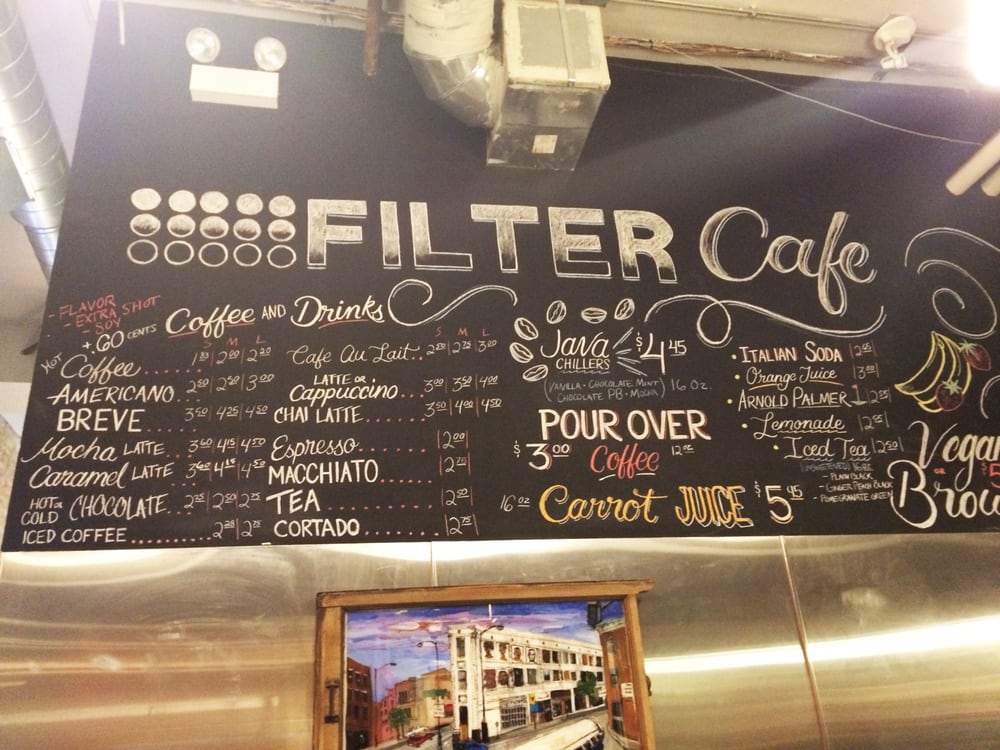 FILTER Cafe
- FLAVOR
- EXTRA SHOT
- SOY
+ 60 CENTS
Coffee AND Drinks
S M L
HOT Coffee...... 2 00 2 20
AMERICANO... 3 00
BREVE...... 3 50 4 25 4 50
Mocha LATTE.. 3 60 4 15 4 50
Caramel LATTE 3 60 4 15 4 50
HOT OR COLD CHOCOLATE... 2 75
ICED COFFEE.......... 2 75
S M L
Cafe Au Lait.. 2 50 2 75 3 00
LATTE OR
Cappuccino.... 3 00 3 50 4 00
CHAI LATTE.... 3 50 4 00 4 50
Espresso....... 2 00
MACCHIATO..... 2 75
TEA...........
CORTADO....... 2 75
Java
CHILLERS
$4 45
(VANILLA • CHOCOLATE MINT)
CHOCOLATE PB • MOCHA
16 oz.
POUR OVER
$3 00 Coffee 12 oz
16 oz Carrot JUICE $5 95
• ITALIAN SODA
• Orange Juice
• ARNOLD PALMER
• Lemonade
• Iced Tea 2 50
(UNSWEETENED)
- PLAIN BLACK
- GINGER PEACH BLACK
- POMEGRANATE GREEN
Vegan
OR
Brow